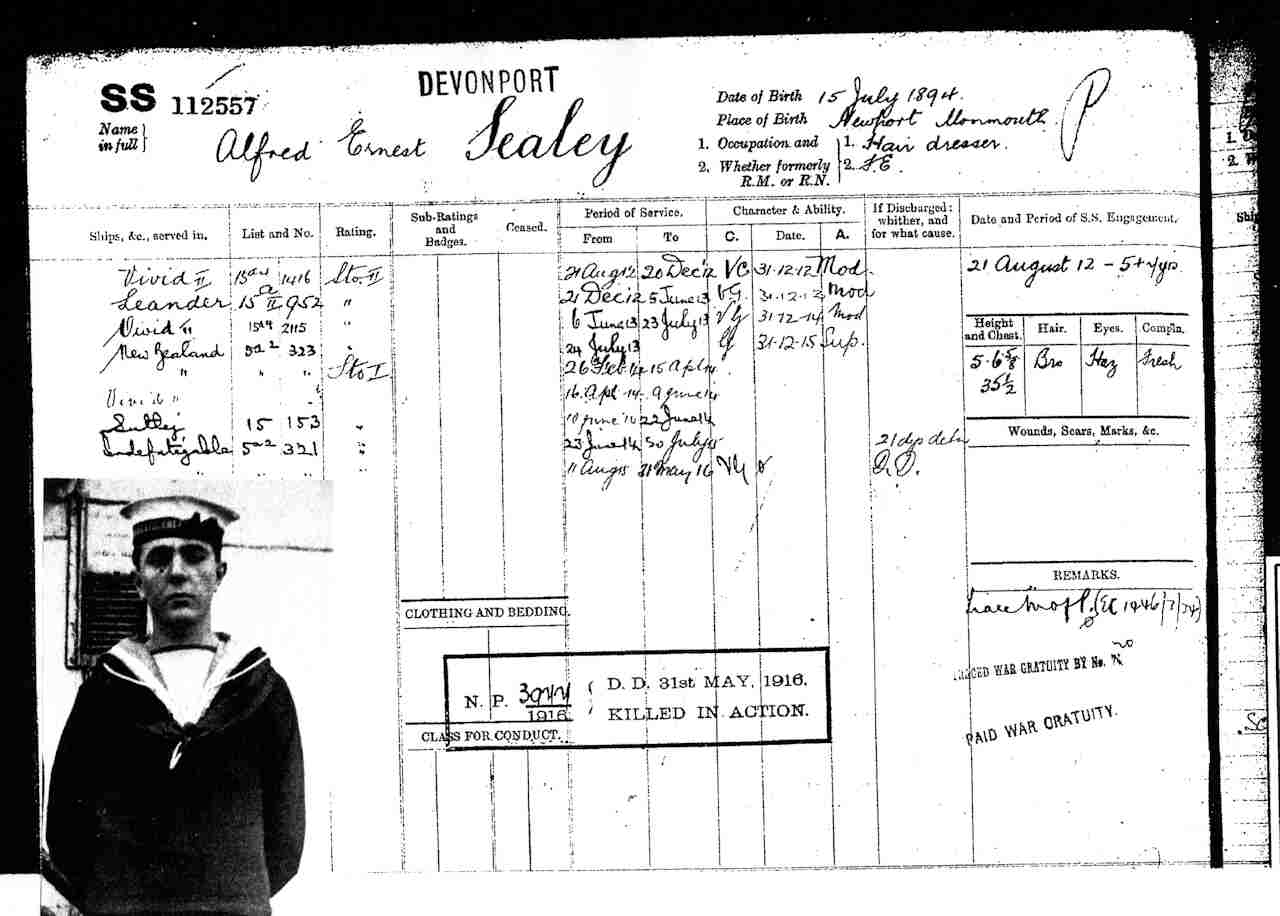 DEVONPORT
SS 112557
Name in full
Alfred Ernest Sealey
Date of Birth 15 July 1894.
Place of Birth Newport Monmouth
1. Occupation and 1. Hair dresser.
2. Whether formerly R.M. or R.N. 2. F.E.
P
Ships, &c., served in. List and No. Rating. Sub-Ratings and Badges. Ceased. Period of Service. From To Character & Ability. C. Date. A. If Discharged: whither, and for what cause. Date and Period of S.S. Engagement.
Vivid II 1416 Sto. II 21 Aug 12 20 Dec 12 VG 31.12.12 Mod.
21 August 12 – 5+7yrs
Leander 15 II 952 " 21 Dec 12 5 June 13 VG 31.12.13 Mod
Vivid II 2115 " 6 June 13 23 July 13 VG 31-12-14 Mod
New Zealand 5a2 323 " 24 July 13 G 31-12-15 Sup.
" " " Sto I 26 Feb 14 15 Apl 14
Vivid II 16 Apl 14 9 June 14
Sutlej 15 153 " 10 June 14 22 June 14
Indefatigable 5a2 321 " 23 June 14 30 July 15 21 dys detn
" " " " 11 Aug 15 31 May 16 VG D.D.
Height and Chest. Hair. Eyes. Compln.
5·6 5/8 Bro Haz Fresh
35 1/2
Wounds, Scars, Marks, &c.
REMARKS.
CLOTHING AND BEDDING.
N. P. 1916.
D. D. 31st MAY, 1916.
KILLED IN ACTION.
CLASS FOR CONDUCT.
WAR GRATUITY BY No.
PAID WAR GRATUITY.